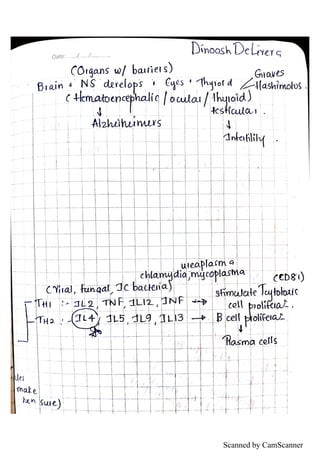 Date: / /
Dinoosh DeLivera
(Organs w/ barriers)
Graves
Brain + NS develops + Eyes + Thyroid
Hashimotos
(Hematoencephalic / ocular / thyroid)
testicular.
↓
↓
Alzheihmers
Infertility
ureaplasma
chlamydia, mycoplasma
(Viral, fungal, IC bacteria)
(CD81)
TH1 :- IL2, TNF, IL12, INF → stimulate Tcytotoxic cell proliferat.
TH2 :- IL4, IL5, IL9, IL13 → B cell proliferat
↓
Plasma cells
make
sure)
Scanned by CamScanner